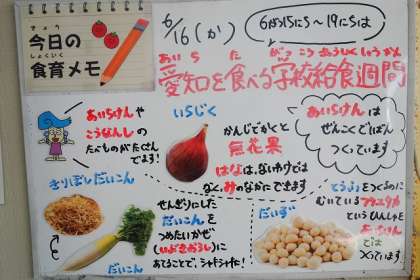 きょう
今日の
しょくいく
食育メモ
6/16(か)
6がつ15にち〜19にちは
あいち た がっこうきゅうしょくしゅうかん
愛知を食べる学校給食週間
あいちけんや
こうなんしの
たべものがたくさん
でます!
いちじく
かんじでかくと
無花果
はなは、ないわけでは
なく、みのなかでできます
あいちけんは
ぜんこくで1ばん
つくっています
きりぼしだいこん
せんぎりにした
だいこんを
つめたいかぜ
(いぶきおろし)に
あてることで、シャキシャキに!
だいこん
だいず
とうふをつくるのに
むいている
フクユタカ
というひんしゅを
あいちけん
では
つくっています